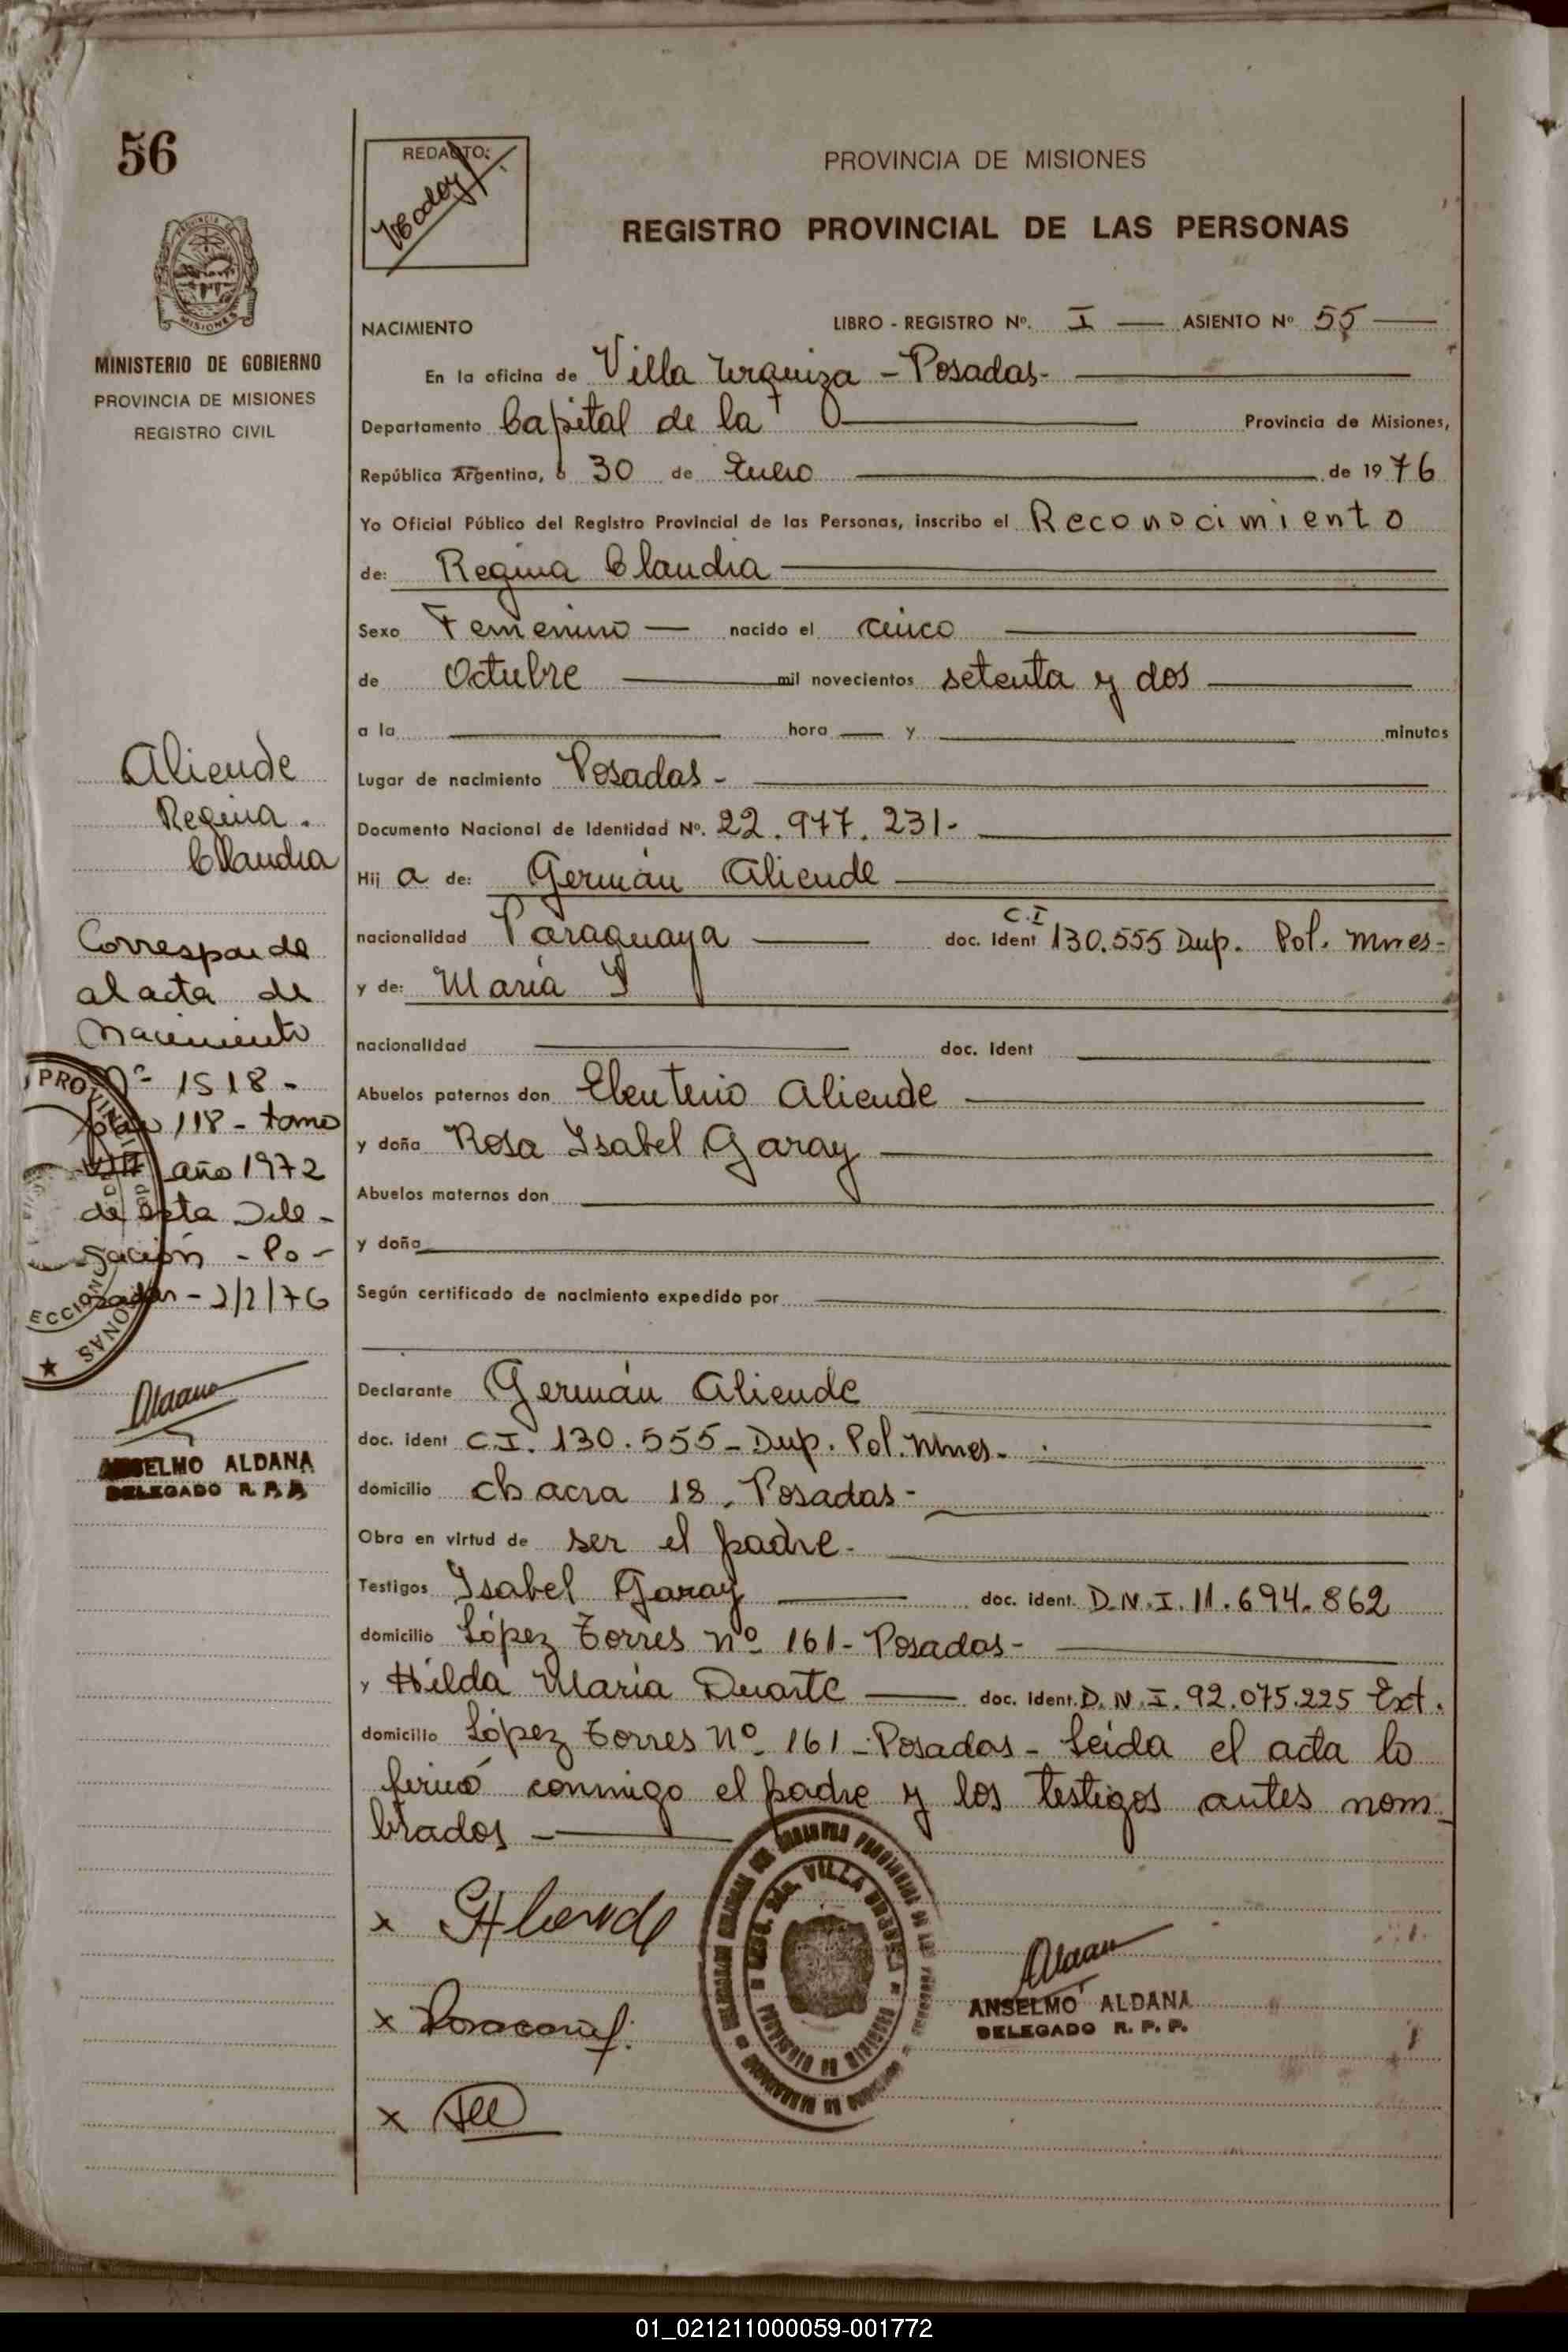 56
REDACTO:
PROVINCIA DE MISIONES
REGISTRO PROVINCIAL DE LAS PERSONAS
MISIONES
MINISTERIO DE GOBIERNO
PROVINCIA DE MISIONES
REGISTRO CIVIL
NACIMIENTO LIBRO - REGISTRO Nº. I ASIENTO Nº 55
En la oficina de Villa Urquiza - Posadas-
Departamento Capital de la Provincia de Misiones,
República Argentina, a 30 de Enero de 1976
Yo Oficial Público del Registro Provincial de las Personas, inscribo el Reconocimiento
de: Regina Claudia
Sexo Femenino nacido el cinco
de Octubre mil novecientos setenta y dos
a la hora y minutos
Lugar de nacimiento Posadas -
Documento Nacional de Identidad Nº. 22.977.231-
Hij a de: Germán Aliende
nacionalidad Paraguaya doc. Ident C.I 130.555 Dup. Pol. Mnes-
y de: María
nacionalidad doc. Ident
Abuelos paternos don Eleuterio Aliende
y doña Rosa Isabel Garay
Abuelos maternos don
y doña
Según certificado de nacimiento expedido por
Declarante Germán Aliende
doc. ident C.I. 130.555- Dup. Pol. Mnes-
domicilio chacra 18. Posadas-
Obra en virtud de ser el padre-
Testigos Isabel Garay doc. ident. D.N.I. 11.694.862
domicilio López Torres nº 161- Posadas-
y Hilda María Duarte doc. Ident. D.N.I. 92.075.225 Ext.
domicilio López Torres Nº 161 - Posadas - Leida el acta lo
firmó conmigo el padre y los testigos antes nom
brados -
Aliende
Regina.
Claudia
Corresponde
al acta de
Nacimiento
Nº 1518-
folio 118- tomo
año 1972
de esta Dele-
gación - Po-
sadas - 2/2/76
ANSELMO ALDANA
DELEGADO R.P.P.
VILLA URQUIZA
ANSELMO ALDANA
DELEGADO R. P. P.
01_021211000059-001772